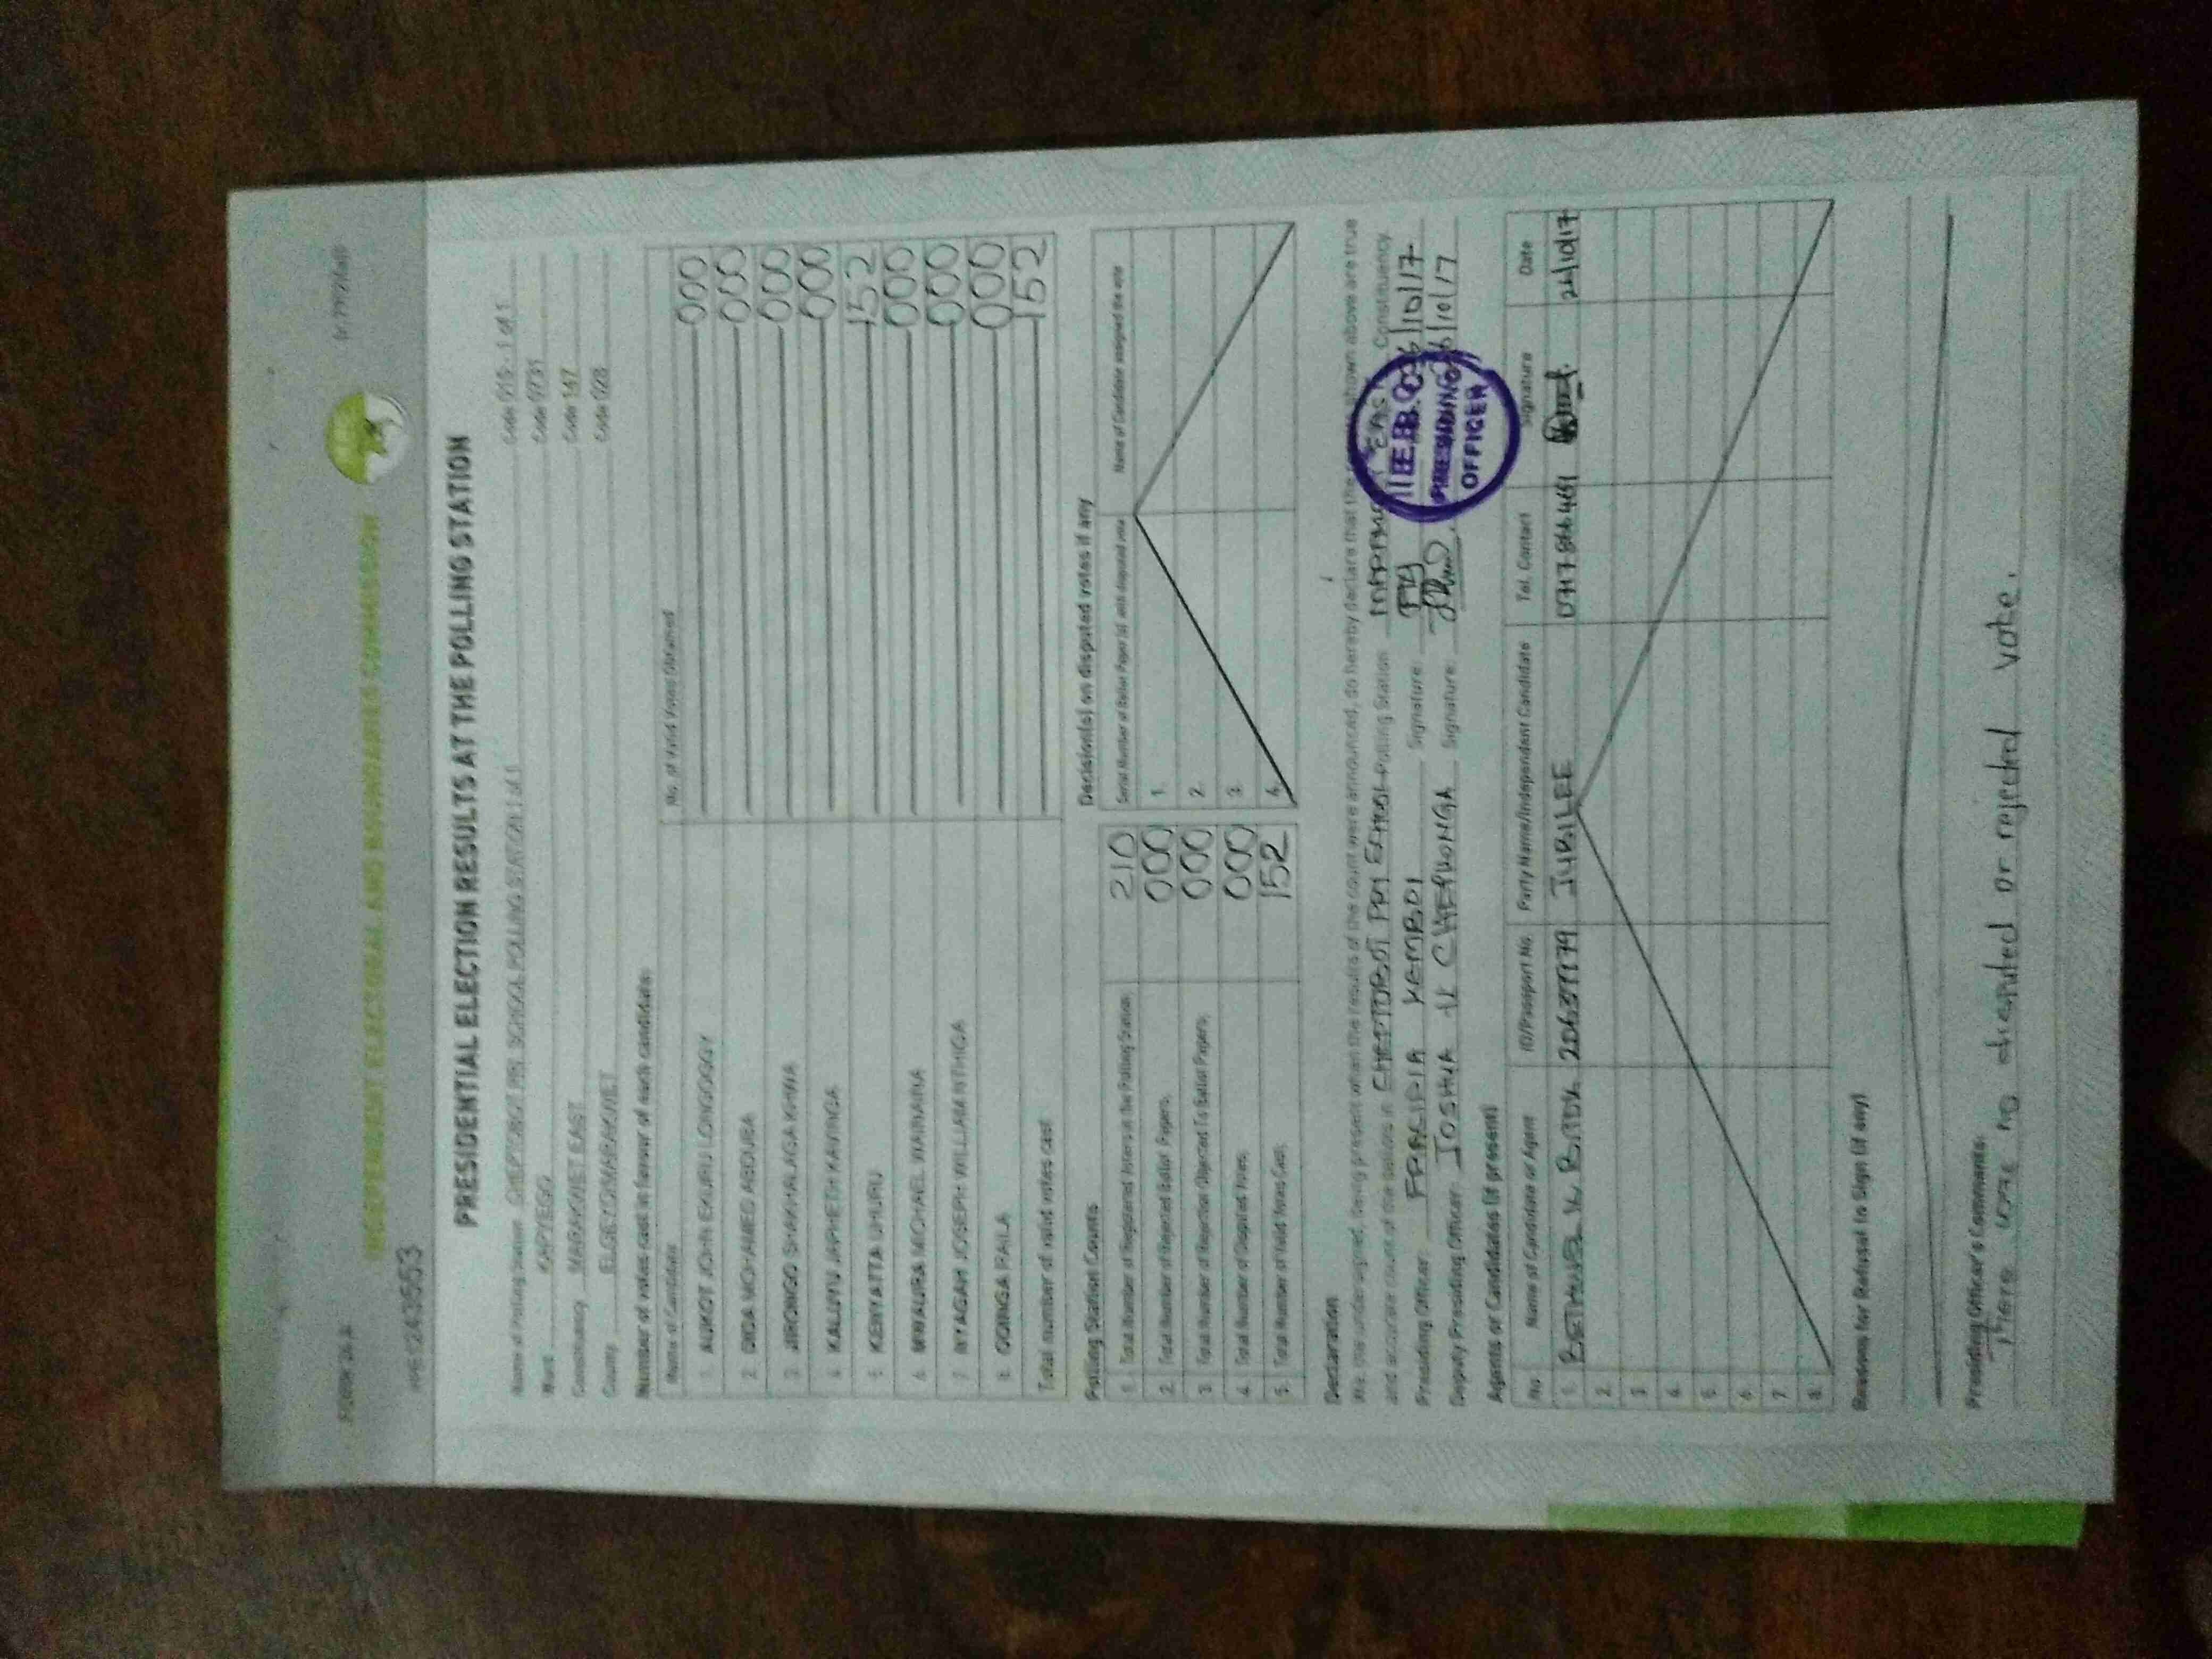 FORM 34A
INDEPENDENT ELECTORAL AND BOUNDARIES COMMISSION
PRESIDENTIAL ELECTION RESULTS AT THE POLLING STATION
Name of Polling Station CHEPTOBOT PRI SCHOOL POLLING STATION 1 of 1 Code 015 - 1 of 1
Ward KAPYEGO Code 0731
Constituency MARAKWET EAST Code 147
County ELGEYO/MARAKWET Code 028
Number of votes cast in favour of each candidate
Name of Candidate No. of Valid Votes Obtained
1. AUKOT JOHN EKURU LONGOGGY 000
2. DIDA MOHAMED ABDUBA 000
3. JIRONGO SHAKHALAGA KHWA 000
4. KALUYU JAPHETH KAVINGA 000
5. KENYATTA UHURU 152
6. MWAURA MICHAEL WAINAINA 000
7. NYAGAH JOSEPH WILLIAM NTHIGA 000
8. ODINGA RAILA 000
Total number of valid votes cast 152
Polling Station Counts
1. Total Number of Registered Voters in the Polling Station 210
2. Total Number of Rejected Ballot Papers 000
3. Total Number of Rejection Objected To Ballot Papers 000
4. Total Number of Disputed Votes 000
5. Total Number of Valid Votes Cast 152
Decision(s) on disputed votes if any
Serial Number of Ballot Paper(s) with disputed vote Name of Candidate assigned the vote
1.
2.
3.
4.
Declaration
We, the undersigned, being present when the results of the count were announced, do hereby declare that the shown above are true
and accurate count of the ballots in CHEPTOBOT PRI SCHOOL Polling Station EAST Constituency
Presiding Officer: KEMBOI Signature: /10/17
Deputy Presiding Officer: JOSHUA K CHEPKONGA Signature: /10/17
PRESIDING
OFFICER
Agents or Candidates (if present)
No. Name of Candidate or Agent ID/Passport No. Party Name/Independent Candidate Tel. Contact Signature Date
1. JUBILEE
2.
3.
4.
5.
6.
7.
8.
Reasons for Refusal to Sign (if any)
Presiding Officer's Comments:
There was no disputed or rejected vote.